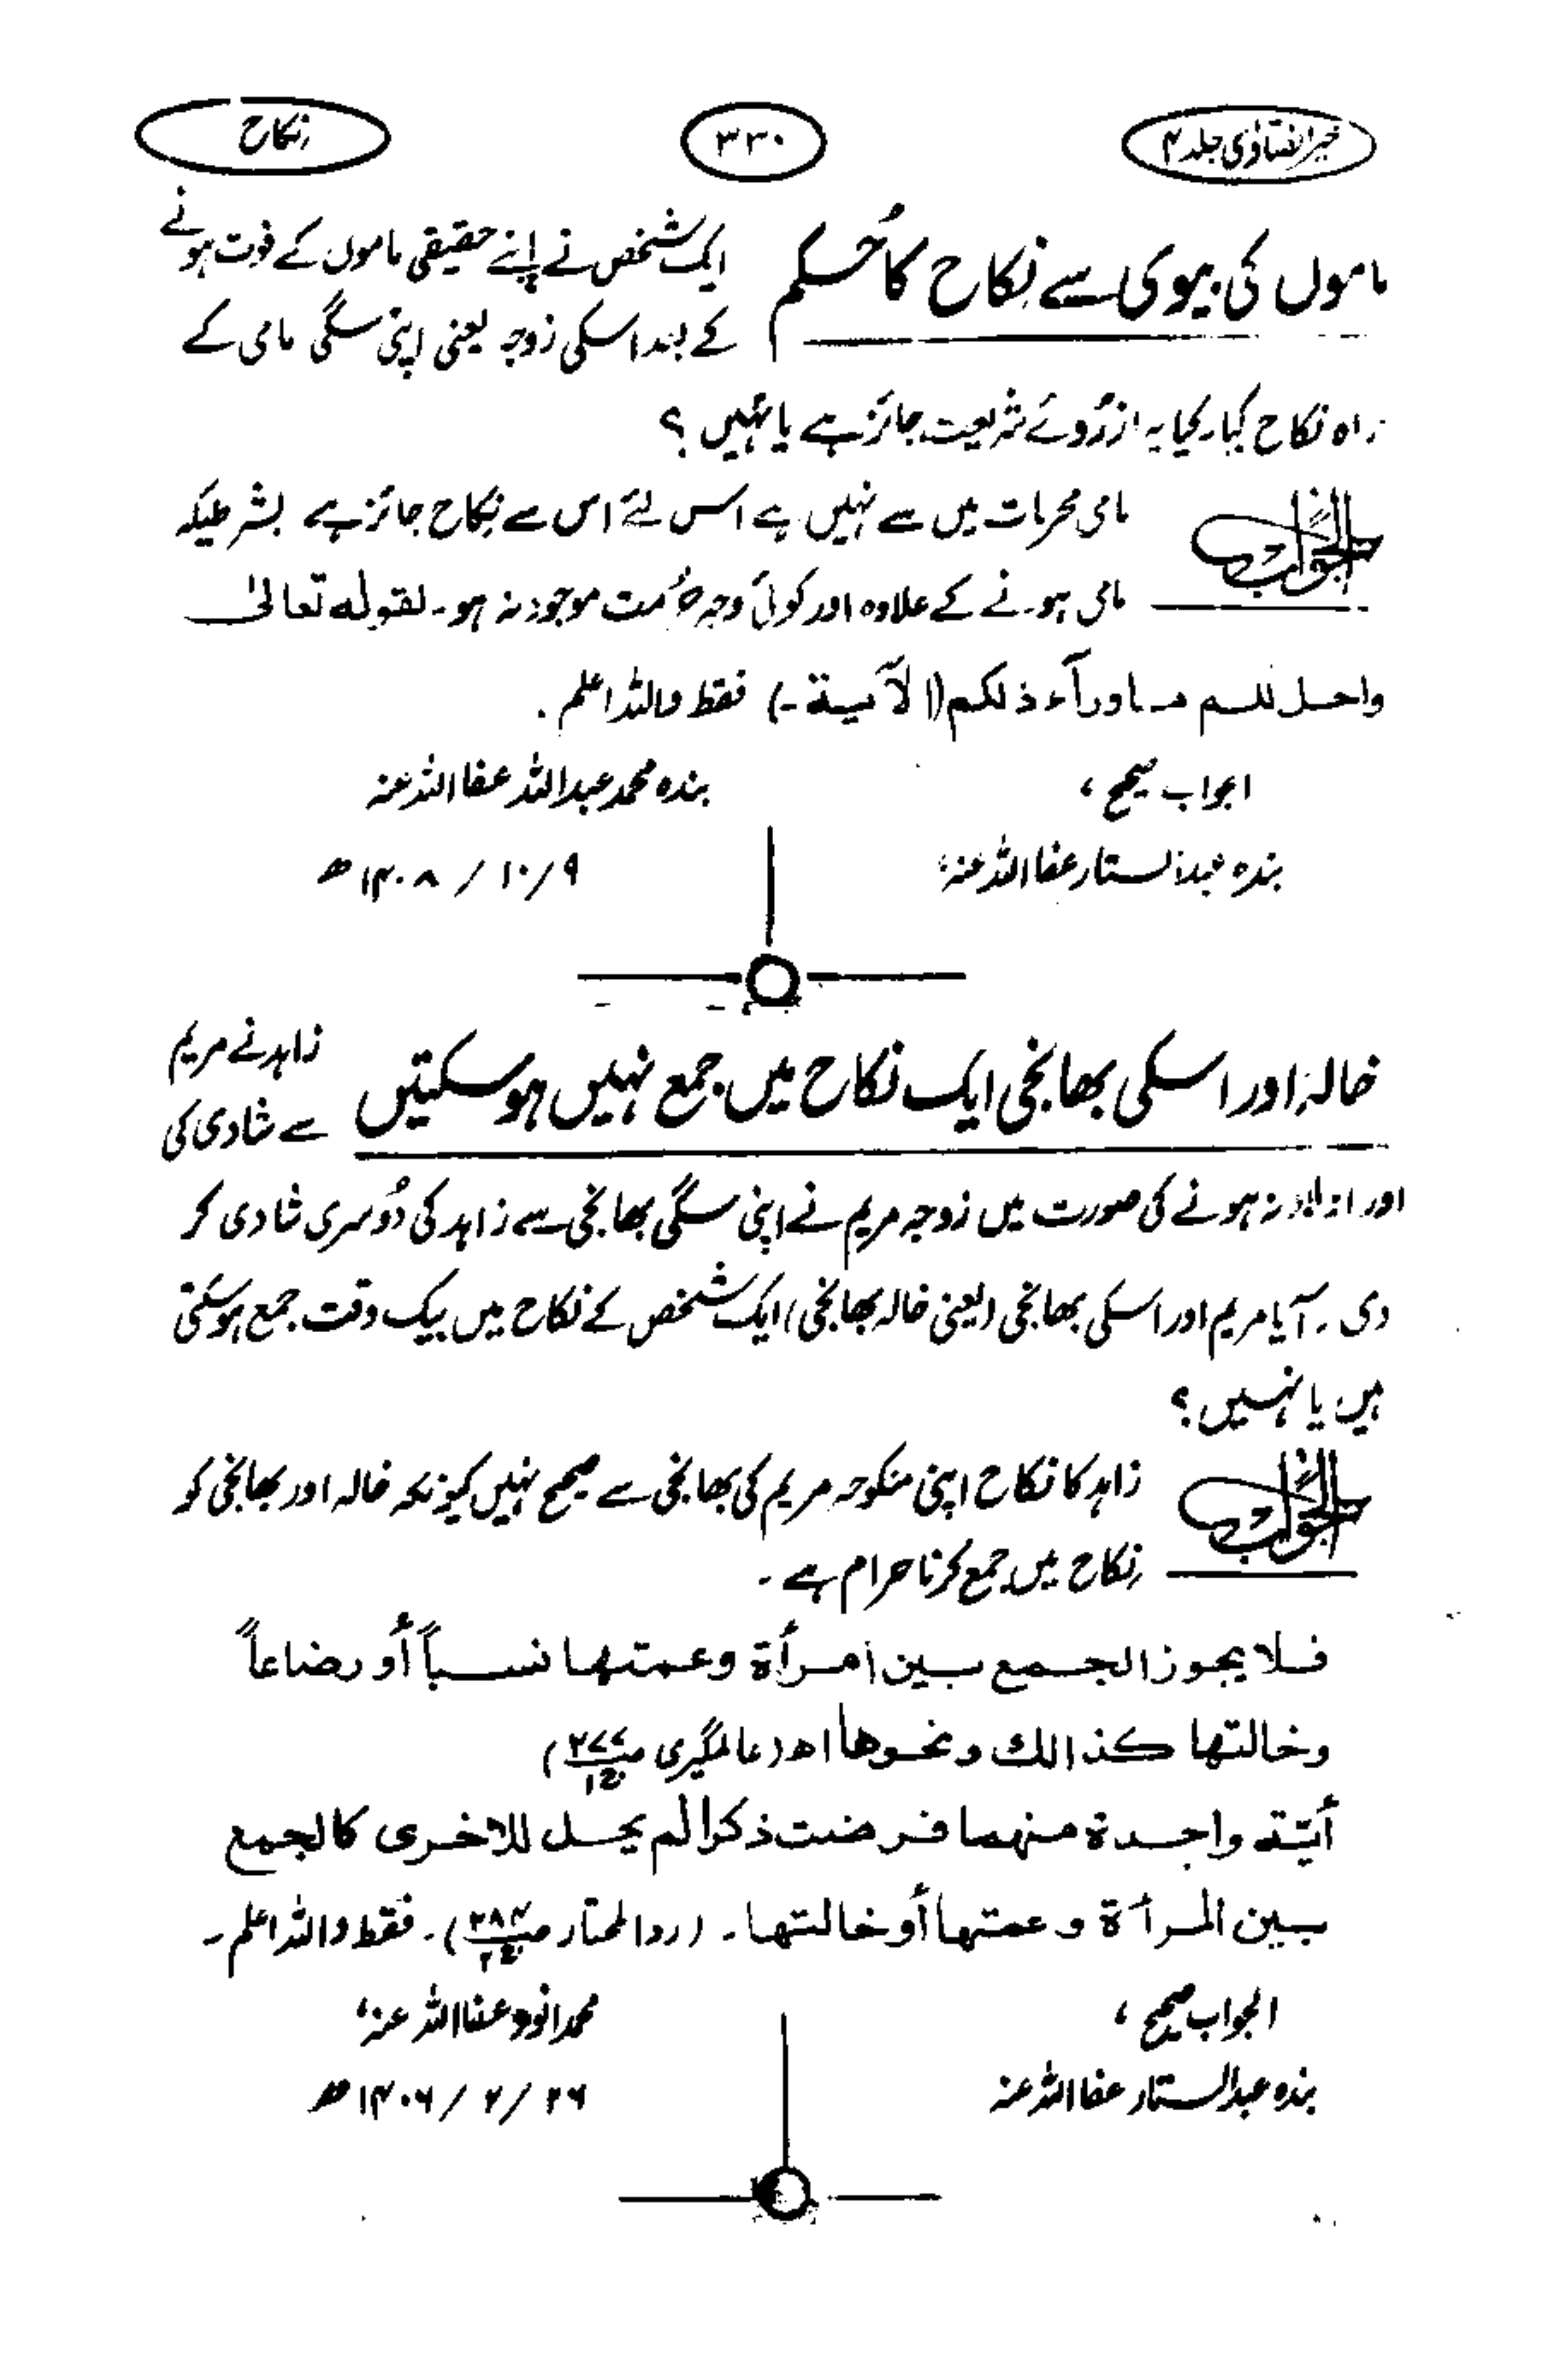 خیر الفتاوٰی جلد ۴
۳۳۰
نکاح
ماموں کی بیوی سے نکاح کا حُکم
ایک شخص نے اپنے حقیقی ماموں کے فوت ہونے
کے بعد اسکی زوجہ یعنی اپنی سگی مامی کے
راہ نکاح کیا۔ کیا یہ ازرُوئے شریعت جائز ہے یا نہیں؟
الجواب
مامی محرمات میں سے نہیں ہے اس لئے اس سے نکاح جائز ہے بشرطیکہ
مامی ہونے کے علاوہ اور کوئی وجہ حُرمت موجود نہ ہو۔ لقوله تعالىٰ
واحل لکم ما وراء ذلکم (الآية-) فقط واللہ اعلم.
الجواب صحیح،
بندہ محمد عبداللہ عفا اللہ عنہ
بندہ عبدالستار عفا اللہ عنہ،
۹/۱۰/ ۱۴۰۸ ھ
خالہ اور اسکی بھانجی ایک نکاح میں جمع نہیں ہو سکتیں
زاہد نے مریم
سے شادی کی
اور اولاد نہ ہونے کی صورت میں زوجہ مریم نے اپنی سگی بھانجی سے زاہد کی دُوسری شادی کر
دی۔ آیا مریم اور اسکی بھانجی (یعنی خالہ بھانجی) ایک شخص کے نکاح میں بیک وقت جمع ہو سکتی
ہیں یا نہیں؟
الجواب
زاہد کا نکاح اپنی منکوحہ مریم کی بھانجی سے صحیح نہیں کیونکہ خالہ اور بھانجی کو
نکاح میں جمع کرنا حرام ہے۔
فلا يجوز الجمع بين امرأة وعمتها نسباً أو رضاعاً
وخالتها كذالك ونحوها اھ (عالمگیری ص۲۷۷ ج۱)
أيّة واحدة منهما فرضت ذكرا لم يحل للاخرى كالجمع
بين المرأة وعمتها أو خالتها۔ (ردالمحتار ص۳۸۴ ج۲)۔ فقط واللہ اعلم۔
الجواب صحیح،
محمد انور عفا اللہ عنہ،
بندہ عبدالستار عفا اللہ عنہ
۲۶/ ۶/ ۱۴۰۶ ھ